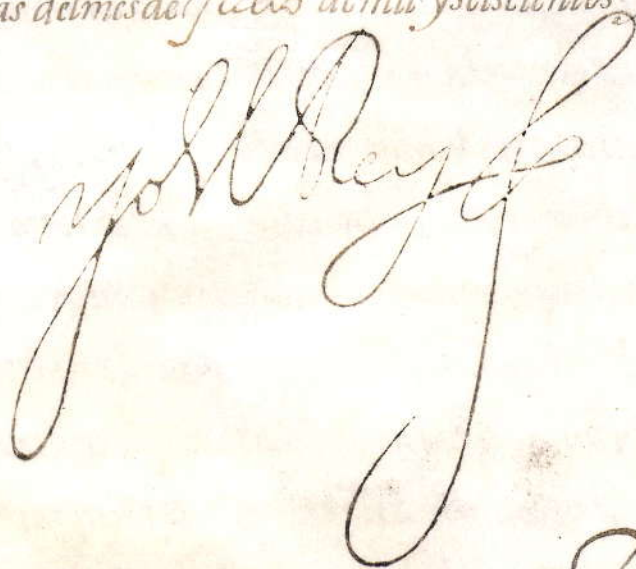 as del mes de Julio de mill y seiscientos
yo el Rey